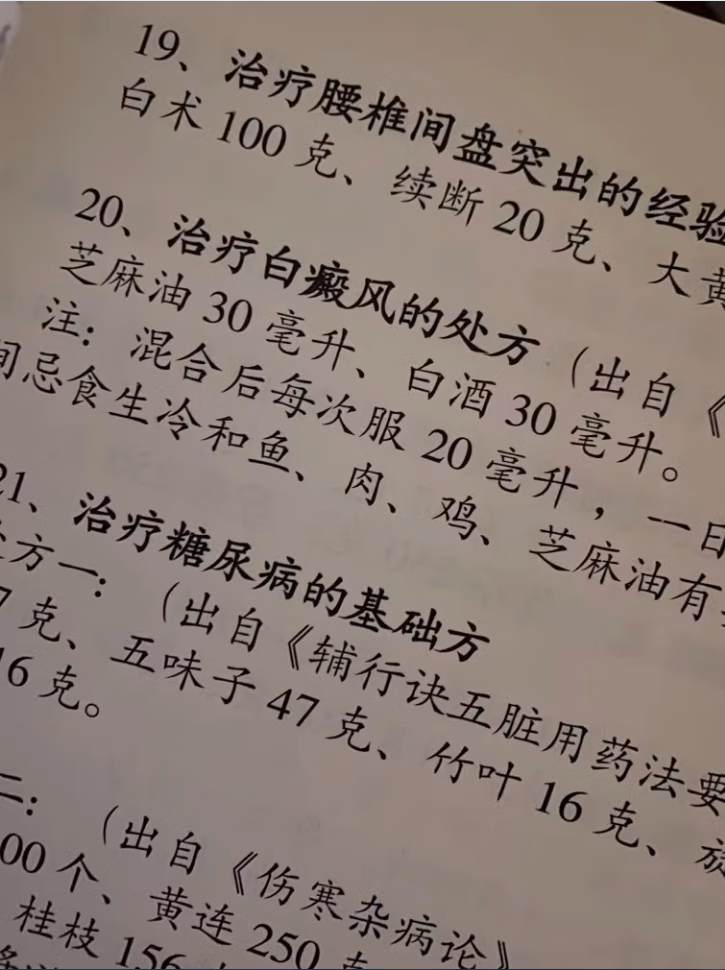 19、治疗腰椎间盘突出的经验
白术 100 克、续断 20 克、大黄
20、治疗白癜风的处方（出自《
芝麻油 30 毫升、白酒 30 毫升。
注：混合后每次服 20 毫升，一日
间忌食生冷和鱼、肉、鸡、芝麻油有
21、治疗糖尿病的基础方
处方一：（出自《辅行诀五脏用药法要
7 克、五味子 47 克、竹叶 16 克、旋
16 克。
二：（出自《伤寒杂病论》
00 个、黄连 250 克
桂枝 156